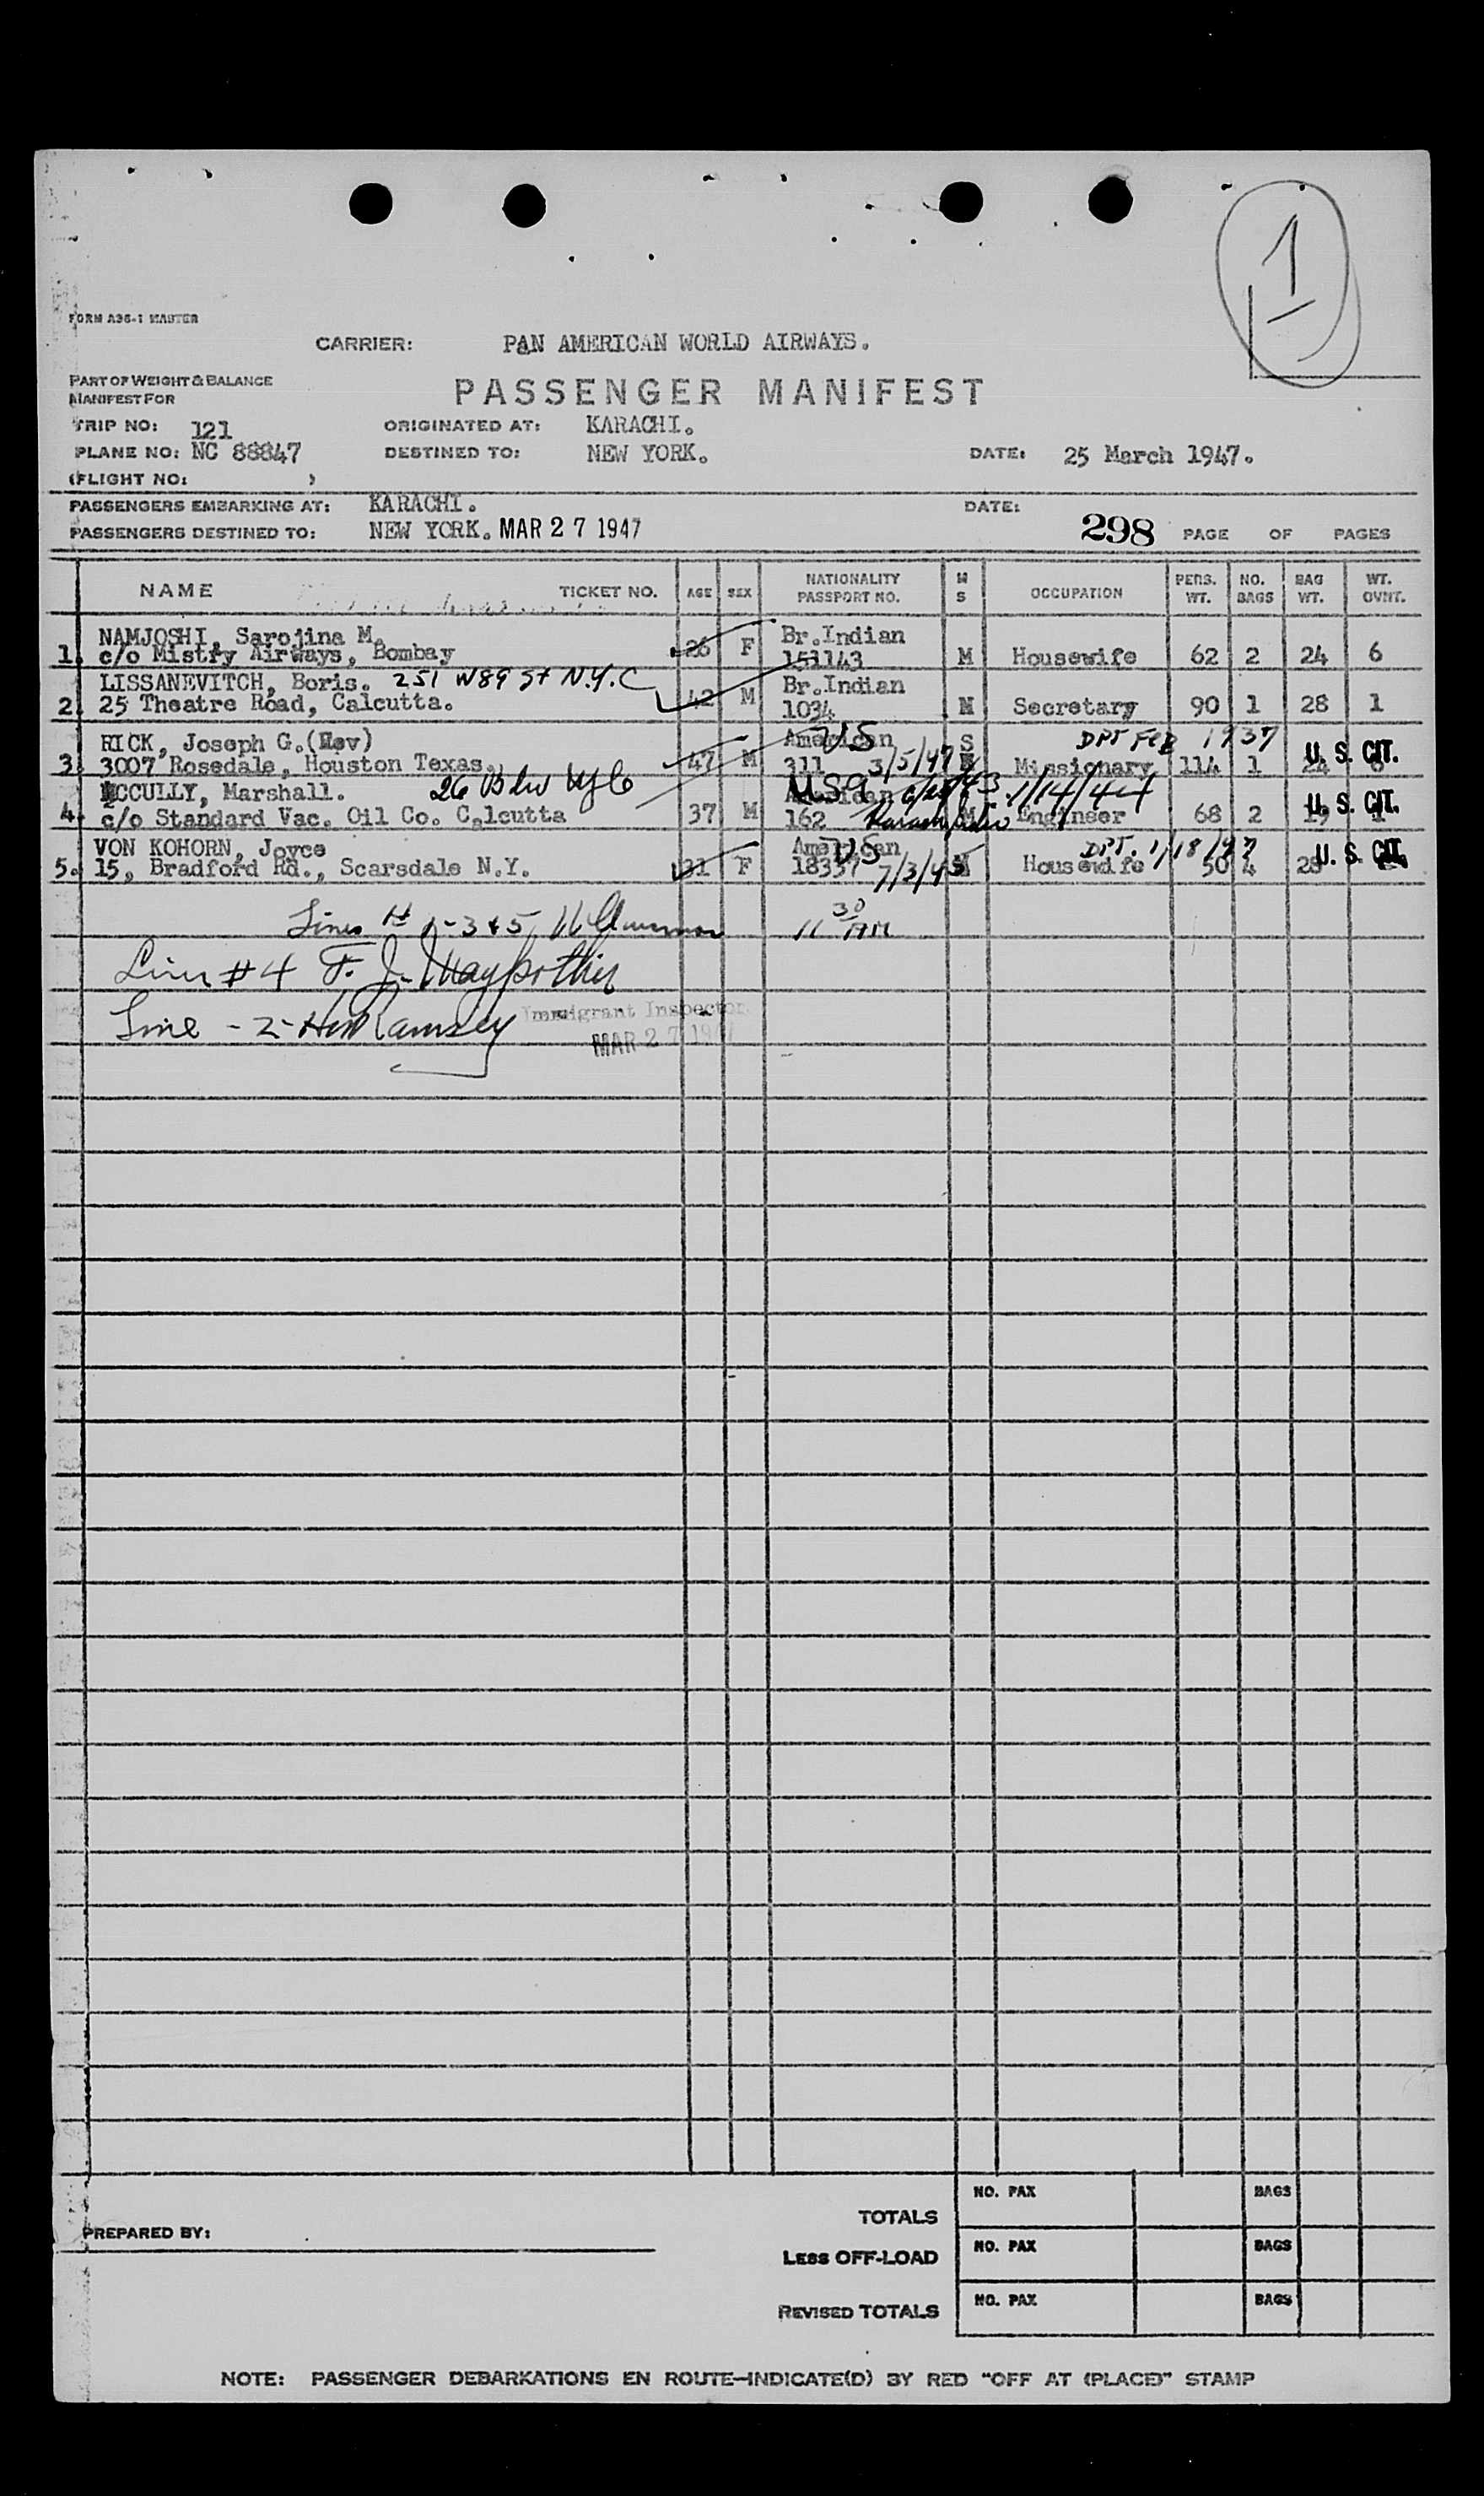 1
FORM A36-1 MASTER
CARRIER: PAN AMERICAN WORLD AIRWAYS.
PART OF WEIGHT & BALANCE
MANIFEST FOR
PASSENGER MANIFEST
TRIP NO: 121 ORIGINATED AT: KARACHI.
PLANE NO: NC 88847 DESTINED TO: NEW YORK. DATE: 25 March 1947.
(FLIGHT NO: )
PASSENGERS EMBARKING AT: KARACHI. DATE:
PASSENGERS DESTINED TO: NEW YORK. MAR 27 1947 298 PAGE OF PAGES
NAME TICKET NO. AGE SEX NATIONALITY PASSPORT NO. M S OCCUPATION PERS. WT. NO. BAGS BAG WT. WT. OVNT.
NAMJOSHI, Sarojina M. Br.Indian
1. c/o Mistry Airways, Bombay 26 F 151143 M Housewife 62 2 24 6
LISSANEVITCH, Boris. 251 W 89 St N.Y.C Br.Indian
2. 25 Theatre Road, Calcutta. 42 M 1034 M Secretary 90 1 28 1
RICK, Joseph G.(Rev) American US S DPT FEB 1937
3. 3007 Rosedale, Houston Texas. 47 M 311 3/5/47 Missionary 114 1 24 U. S. CIT.
MCCULLY, Marshall. 26 Bdw NYC American USA 1/14/44
4. c/o Standard Vac. Oil Co. Calcutta 37 M 162 M Engineer 68 2 19 1 U. S. CIT.
VON KOHORN, Joyce American US DPT. 1/18/47
5. 15, Bradford Rd., Scarsdale N.Y. 31 F 18337 7/3/45 M Housewife 50 4 28 U. S. CIT.
Lines # 1-3 & 5, 11 30 AM
Line #4 F. J.
Line - 2 - Ramsey Immigrant Inspector
MAR 27 1947
PREPARED BY:
TOTALS NO. PAX BAGS
LESS OFF-LOAD NO. PAX BAGS
REVISED TOTALS NO. PAX BAGS
NOTE: PASSENGER DEBARKATIONS EN ROUTE—INDICATE(D) BY RED "OFF AT (PLACE)" STAMP